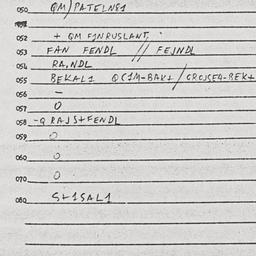 050 QM/PATELNS1
052 + QM FINRUSLANT,
053 FAN FENDL // FEJNDL
054 RA,NDL
055 BEKAL1 QC1M-BAK+/CROJSEQ-BEK+
056 –
057 0
058 -Q RAJS+FENDL
059 0
060 0
070 0
080 S+1SAL1